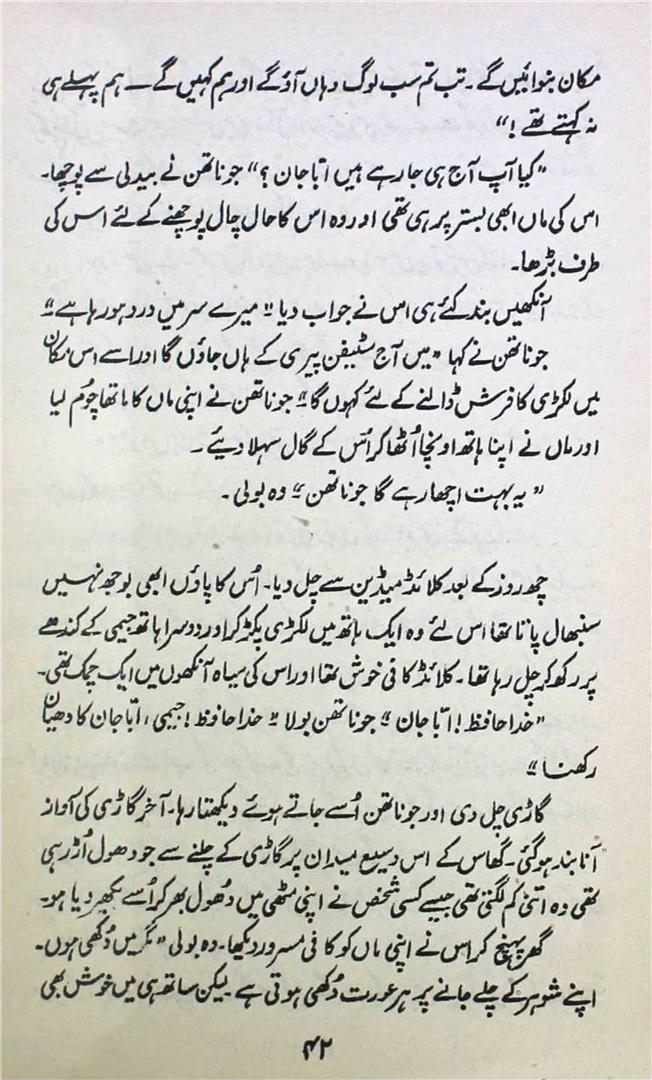 مکان بنوائیں گے۔ تب تم سب لوگ وہاں آؤگے اور ہم کہیں گے ـ ہم پہلے ہی
نہ کہتے تھے!“
”کیا آپ آج ہی جارہے ہیں ابّا جان؟“ جوناتھن نے بیدلی سے پوچھا۔
اس کی ماں ابھی بستر پر ہی تھی اور وہ اس کا حال چال پوچھنے کے لئے اس کی
طرف بڑھا۔
آنکھیں بند کئے ہی اس نے جواب دیا ”میرے سر میں درد ہورہا ہے“
جوناتھن نے کہا ”میں آج سٹیفن پیری کے ہاں جاؤں گا اور اسے اس مکان
میں لکڑی کا فرش ڈالنے کے لئے کہوں گا“ جوناتھن نے اپنی ماں کا ماتھا چوم لیا
اور ماں نے اپنا ہاتھ اونچا اُٹھا کر اُس کے گال سہلا دیئے ۔
”یہ بہت اچھا رہے گا جوناتھن“ وہ بولی ۔
چھ روز کے بعد کلائڈ میڈین سے چل دیا۔ اُس کا پاؤں ابھی بوجھ نہیں
سنبھال پاتا تھا اس لئے وہ ایک ہاتھ میں لکڑی پکڑ کر اور دوسرا ہاتھ جیمی کے کندھے
پر رکھ کر چل رہا تھا۔ کلائڈ کافی خوش تھا اور اس کی سیاہ آنکھوں میں ایک چمک تھی۔
”خدا حافظ! ابّا جان“ جوناتھن بولا ”خدا حافظ! جیمی، ابّا جان کا دھیان
رکھنا“
گاڑی چل دی اور جوناتھن اُسے جاتے ہوئے دیکھتا رہا۔ آخر گاڑی کی آواز
آنا بند ہوگئی۔ گھاس کے اس وسیع میدان پر گاڑی کے چلنے سے جو دھول اُڑ رہی
تھی وہ اتنی کم لگتی تھی جیسے کسی شخص نے اپنی مٹھی میں دُھول بھر کر اُسے بکھیر دیا ہو۔
گھر پہنچ کر اس نے اپنی ماں کو کافی مسرور دیکھا۔ وہ بولی ”مگر میں دُکھی ہوں۔
اپنے شوہر کے چلے جانے پر ہر عورت دُکھی ہوتی ہے۔ لیکن ساتھ ہی میں خوش بھی
۴۲